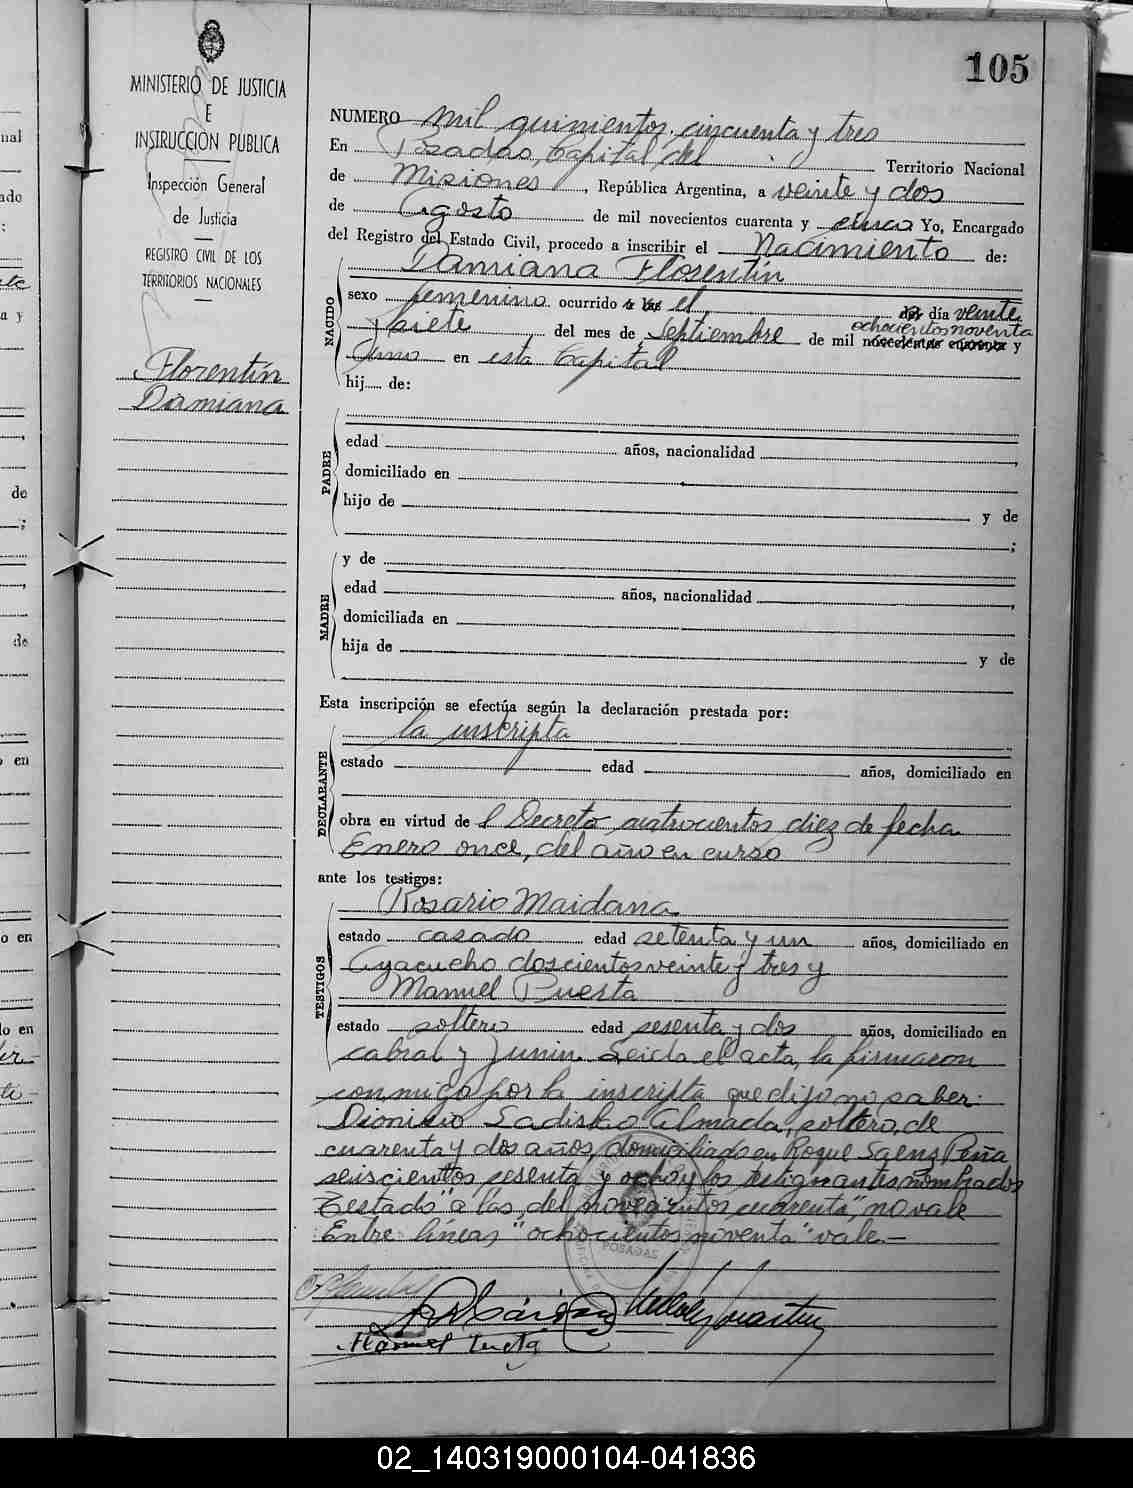 105
MINISTERIO DE JUSTICIA
E
INSTRUCCIÓN PUBLICA
Inspección General
de Justicia
REGISTRO CIVIL DE LOS
TERRITORIOS NACIONALES
Florentín
Damiana
NUMERO mil quinientos cincuenta y tres
En Posadas, Capital del Territorio Nacional
de Misiones, República Argentina, a veinte y dos
de Agosto de mil novecientos cuarenta y cinco Yo, Encargado
del Registro del Estado Civil, procedo a inscribir el Nacimiento de:
NACIDO
Damiana Florentín
sexo femenino ocurrido a las el del día veinte
y siete del mes de Septiembre de mil novecientos cuarenta y
ochocientos noventa
uno en esta Capital
hij de:
PADRE
edad años, nacionalidad
domiciliado en
hijo de y de
;
MADRE
y de
edad años, nacionalidad
domiciliada en
hija de y de
Esta inscripción se efectúa según la declaración prestada por:
DECLARANTE
la inscripta
estado edad años, domiciliado en
obra en virtud de l Decreto cuatrocientos diez de fecha
Enero once, del año en curso
ante los testigos:
TESTIGOS
Rosario Maidana
estado casado edad setenta y un años, domiciliado en
Ayacucho doscientos veinte y tres y
Manuel Puerta
estado soltero edad sesenta y dos años, domiciliado en
cabral y Junin. Leida el acta, la firmaron
conmigo por la inscripta que dijo no saber:
Dionisio Ladislao Almada, soltero, de
cuarenta y dos años, domiciliado en Roque Saenz Peña
seiscientos sesenta y ocho y los testigos antes nombrados
Testado "a las, del novecientos cuarenta", no vale
Entre líneas "ochocientos noventa" vale.—
POSADAS
Manuel
02_140319000104-041836